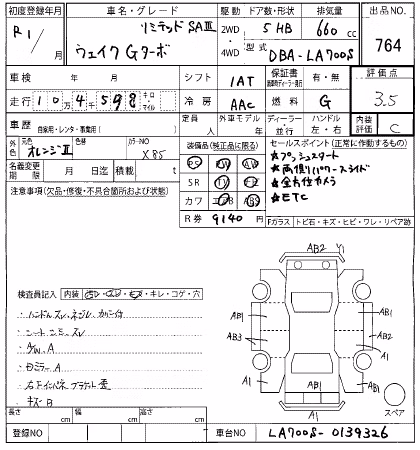 初度登録年月 車名・グレード 駆動 ドア数・形状 排気量 出品NO
R1/ リミテッド SAⅢ 2WD 5 HB 660 cc
ウェイク Gターボ 4WD 型式 DBA-LA700S 764
車検 年 月 シフト IAT 保証書 有・無 評価点
走行 10万4千598 キロ マイル 冷房 AAC 燃料 G 3.5
車歴 自家用・レンタ・事業用( ) 定員 人 外車モデル 年 ディーラー 並行 ハンドル 左・右 内装評価 C
外色 元色 オレンジⅡ 色替 カラーNO X85 装備品(純正品に限る) セールスポイント(正常に作動するもの)
PS PW AW ★プッシュスタート
名義変更期限 月 日迄 積載 t SR TV ★両側パワースライド
注意事項(欠品・修復・不具合箇所および状態) カワ エアB ABS ★全方位カメラ
★ETC
R券 9140 円 Fガラス トビ石・キズ・ヒビ・ワレ・リペア跡
AB2 Y1
検査員記入 内装 汚レ・スレ・キズ・キレ・コゲ・穴
・ハンドルスレ、
・シートシミ、スレ
・A/W.A
AB1 AB3 AB1 AB2 A1
A1 A1 AB1 A1
・キズB
スペア
長さ cm 幅 cm 高さ cm
登録NO 車台NO LA700S-0139326